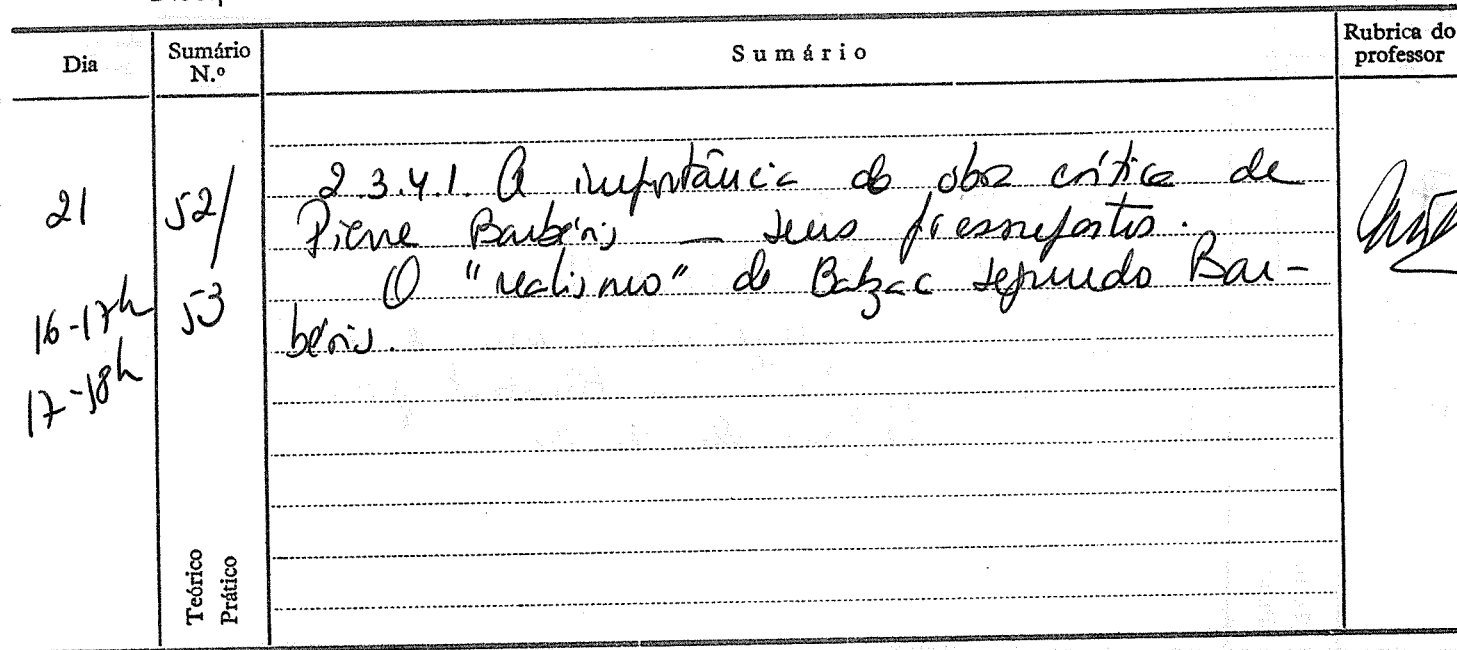 Dia
Sumário N.º
Sumário
Rubrica do professor
21
16-17h
17-18h
52/
53
2.3.4.1. A importância da obra crítica de
Pierre Barbéris — seus pressupostos.
O "realismo" de Balzac segundo Bar-
béris.
Teórico
Prático